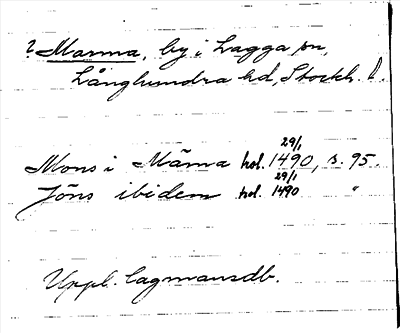 ? Marma, by i Lagga sn,
Långhundra hd, Stockh. l.
29/1
Mons i Märna hol. 1490, s. 95.
29/1
Jöns ibidem hol. 1490 "
Uppl. lagmansdb.